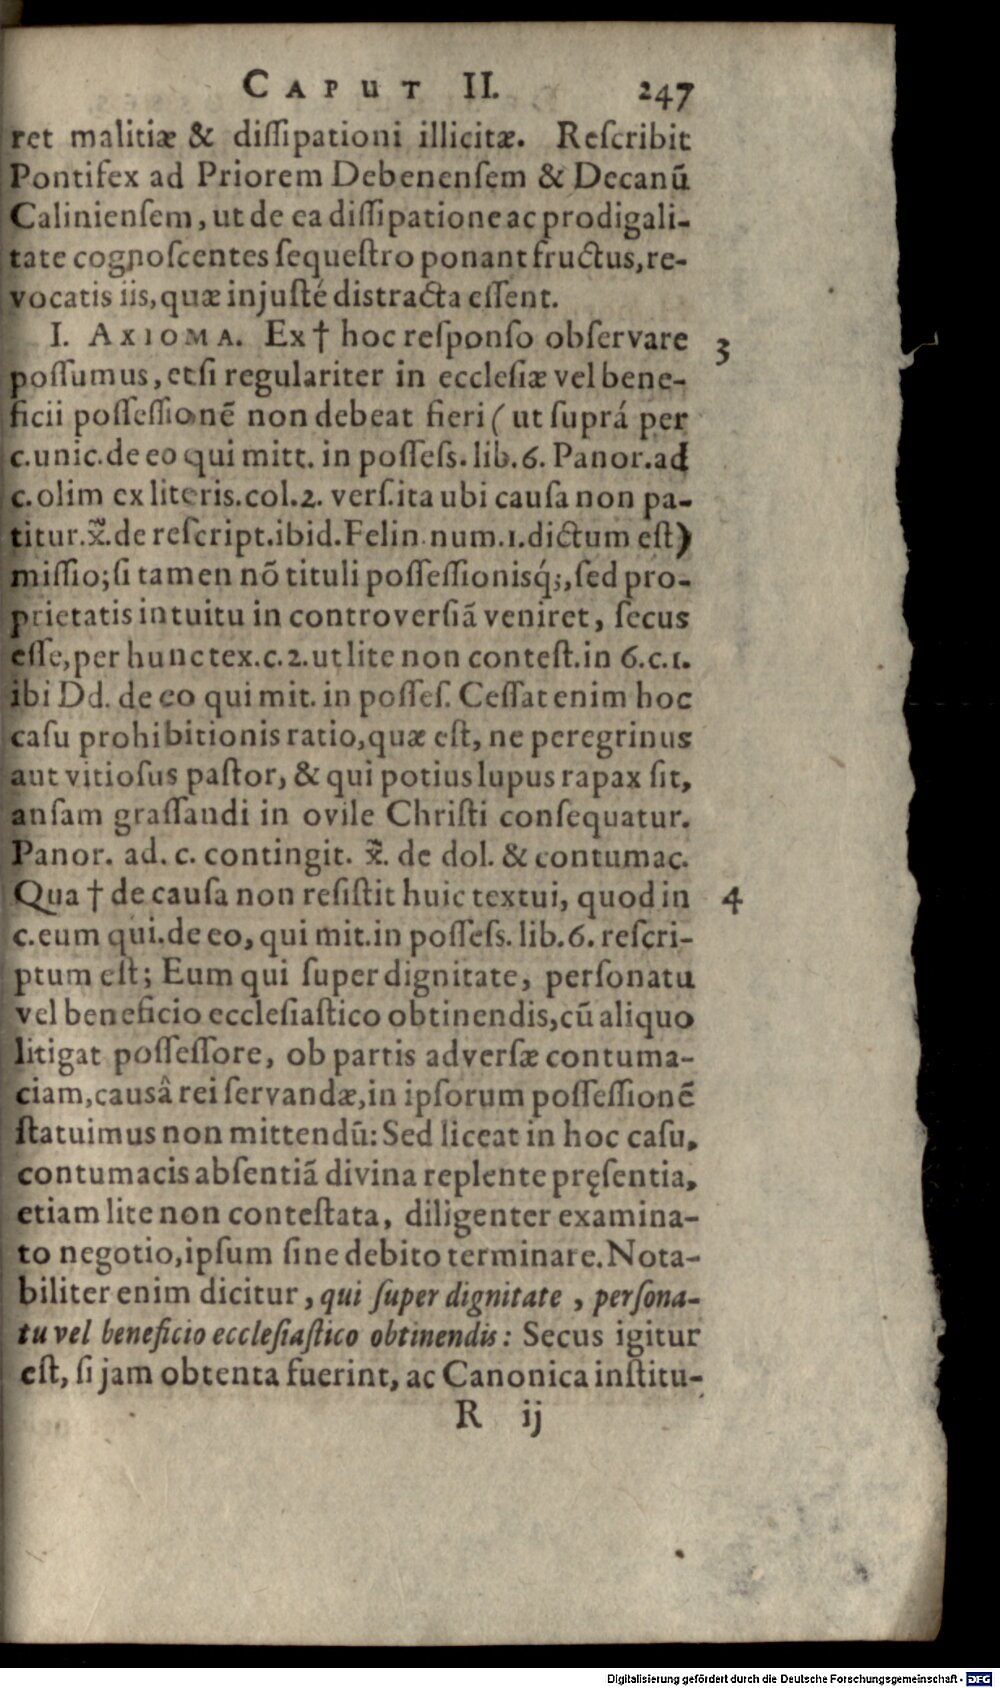 CAPUT II. 247
ret malitiæ & diſſipationi illicitæ. Reſcribit
Pontifex ad Priorem Debenenſem & Decanũ
Calinienſem, ut de ea diſſipatione ac prodigali-
tate cognoſcentes ſequeſtro ponant fructus, re-
vocatis iis, quæ injuſté distracta eſſent.
I. AXIOMA. Ex † hoc reſponſo obſervare 3
poſſumus, etſi regulariter in eccleſiæ vel bene-
ficii poſſeſſionẽ non debeat fieri ( ut ſuprá per
c. unic. de eo qui mitt. in poſſeſs. lib. 6. Panor. ad
c. olim ex literis. col. 2. verſ. ita ubi cauſa non pa-
titur. x̃. de reſcript. ibid. Felin. num. 1. dictum eſt)
miſſio; ſi tamen nõ tituli poſſeſſionisq́;, ſed pro-
prietatis intuitu in controverſiã veniret, ſecus
eſſe, per hunc tex. c. 2. ut lite non conteſt. in 6. c. 1.
ibi Dd. de eo qui mit. in poſſeſ. Ceſſat enim hoc
caſu prohibitionis ratio, quæ eſt, ne peregrinus
aut vitioſus paſtor, & qui potius lupus rapax ſit,
anſam graſſandi in ovile Chriſti conſequatur.
Panor. ad. c. contingit. x̃. de dol. & contumac.
Qua † de cauſa non reſiſtit huic textui, quod in 4
c. eum qui. de eo, qui mit. in poſſeſs. lib. 6. reſcri-
ptum eſt; Eum qui ſuper dignitate, perſonatu
vel beneficio eccleſiaſtico obtinendis, cũ aliquo
litigat poſſeſſore, ob partis adverſæ contuma-
ciam, causâ rei ſervandæ, in ipſorum poſſeſſionẽ
ſtatuimus non mittendũ: Sed liceat in hoc caſu,
contumacis abſentiã divina replente pręſentia,
etiam lite non conteſtata, diligenter examina-
to negotio, ipſum ſine debito terminare. Nota-
biliter enim dicitur, qui ſuper dignitate, perſona-
tu vel beneficio eccleſiaſtico obtinendis: Secus igitur
eſt, ſi jam obtenta fuerint, ac Canonica inſtitu-
R ij
Digitalisierung gefördert durch die Deutsche Forschungsgemeinschaft - DFG